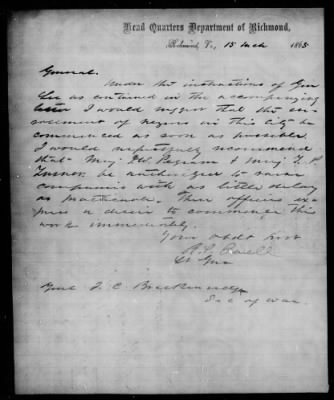 Head Quarters Department of Richmond,
Richmond, Va., 15 Mch 1865
General.
Under the instructions of Gen
Lee as contained in the accompanying
letter I would suggest that the en-
rollment of negroes in this city be
commenced as soon as possible.
I would respectfully recommend
that Maj. J W. Pegram & Maj. T. P.
Turner be authorized to raise
companies with as little delay
as practicable. These officers ex-
press a desire to commence this
work immediately.
Your obdt svt
R. S. Ewell
Lt Gen
Genl J. C. Breckinridge
Sec of War.